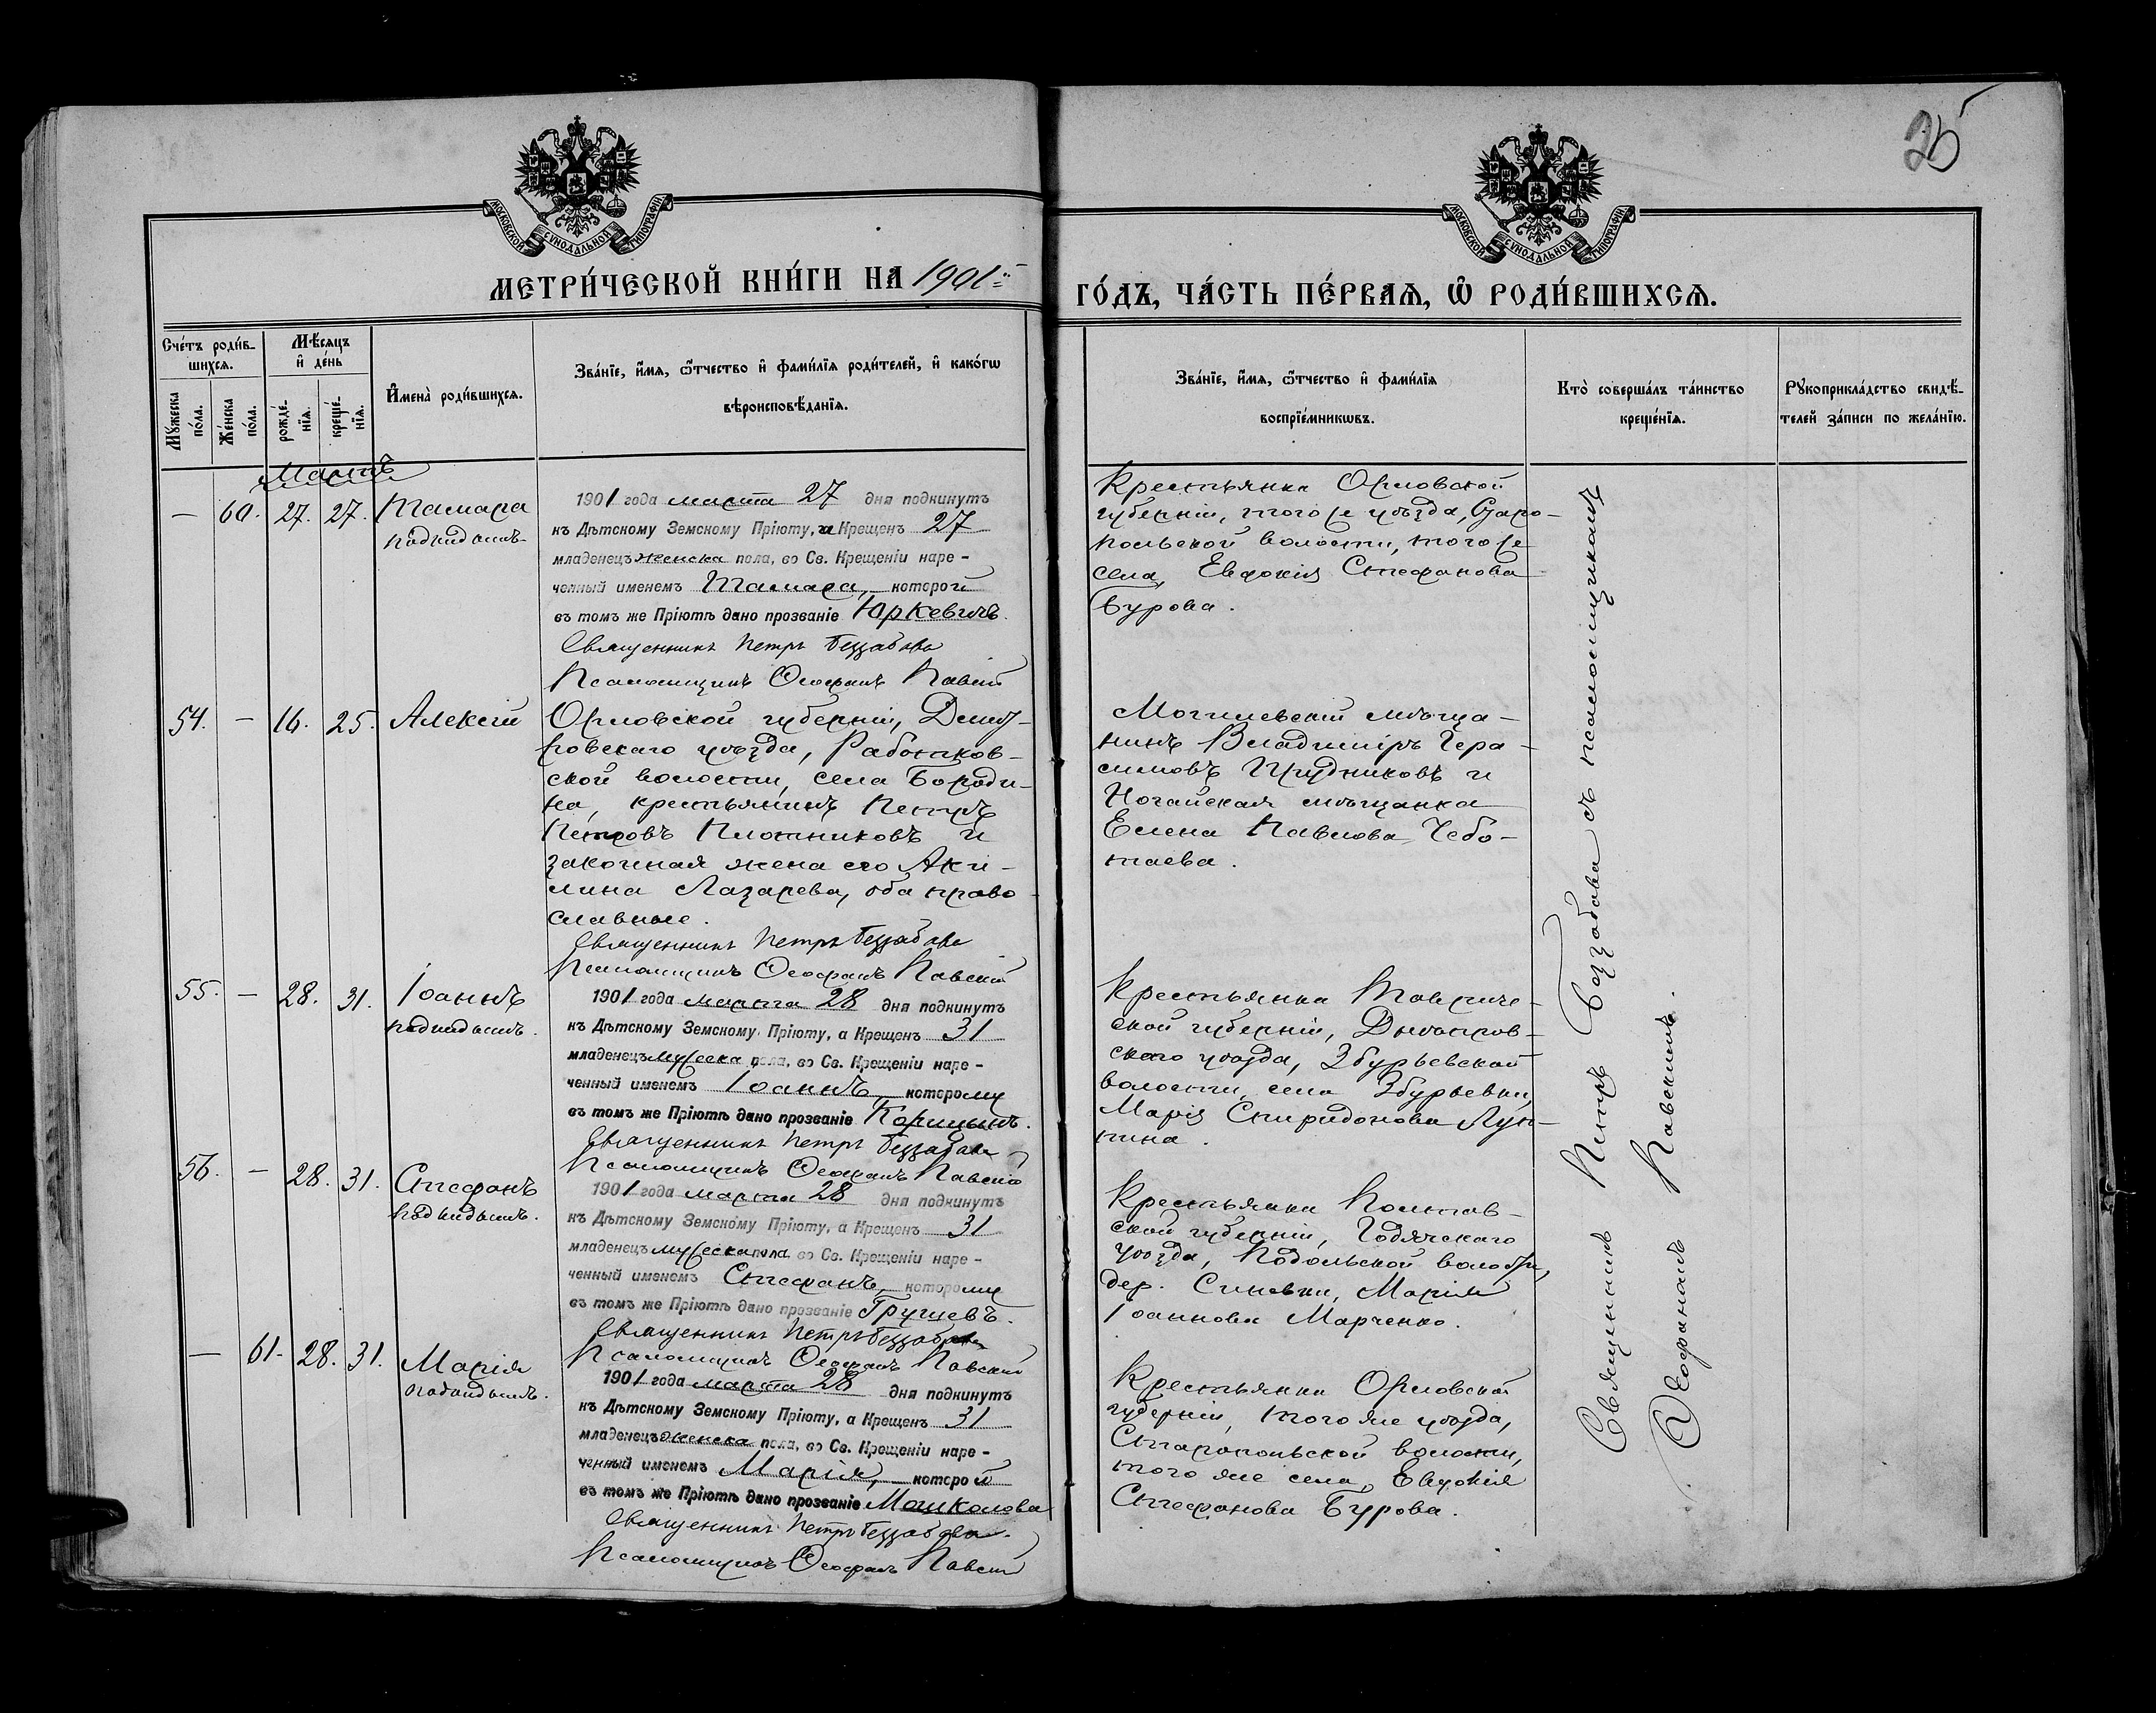 25
МОСКОВСКОЙ СѴНОДАЛЬНОЙ ТИПОГРАФІИ
МОСКОВСКОЙ СѴНОДАЛЬНОЙ ТИПОГРАФІИ
МЕТРИ́ЧЕСКОЙ КНИ́ГИ НА 1901й
ГО́ДЪ, ЧА́СТЬ ПЕ́РВАѦ, Ѽ РОДИ́ВШИХСѦ.
Сче́тъ роди́в-
шихсѧ.
Мꙋ́жеска по́ла.
Же́нска по́ла.
Мѣ́сѧцъ
и҆ де́нь
рожде́-
нїѧ.
креще́-
нїѧ.
И҆мена̀ роди́вшихсѧ.
Зва́нїе, и҆́мѧ, ѻ҆́тчество и҆ фами́лїѧ роди́телей, и҆ како́гѡ
вѣроисповѣ́данїѧ.
Зва́нїе, и҆́мѧ, ѻ҆́тчество и҆ фами́лїѧ
воспрїе́мникѡвъ.
Кто̀ соверша́лъ та́инство
креще́нїѧ.
Рꙋкоприкла́дство свидѣ́-
телей за́писи по жела́нїю.
Мартъ
— 60. 27. 27. Тамара
подкидышъ
1901 года марта 27 дня подкинутъ
къ Дѣтскому Земскому Пріюту, а Крещен 27
младенецъ женска пола, во Св. Крещеніи наре-
ченный именемъ Тамара, которой
въ томъ же Пріютѣ дано прозваніе Юркевичъ.
Священникъ Петръ Беззабава
Псаломщикъ Ѳеофанъ Павскій
Крестьянка Орловской
губерніи, того же уѣзда, Старо-
польской волости, того же
села, Евдокія Стефанова
Бурова.
54. — 16. 25. Алексій
Орловской губерніи, Дмит-
ровскаго уѣзда, Работков-
ской волости, села Бороди-
на, крестьянинъ Петръ
Петровъ Плотниковъ и
законная жена его Аки-
лина Лазарева, оба право-
славные.
Священникъ Петръ Беззабава
Псаломщикъ Ѳеофанъ Павскій
Могилевскій мѣща-
нинъ Владиміръ Гера-
симовъ Прудниковъ и
Ногайская мѣщанка
Елена Павлова Чебо-
таева.
55. — 28. 31. Іоаннъ
подкидышъ.
1901 года марта 28 дня подкинутъ
къ Дѣтскому Земскому Пріюту, а Крещенъ 31
младенецъ мужеска пола, во Св. Крещеніи наре-
ченный именемъ Іоаннъ, которому
въ томъ же Пріютѣ дано прозваніе Корицынъ.
Священникъ Петръ Беззабава
Псаломщикъ Ѳеофанъ Павскій
Крестьянка Тавриче-
ской губерніи, Днѣпров-
скаго уѣзда, Збурьевской
волости, села Збурьевки,
Марія Спиридонова Луп-
пина.
56. — 28. 31. Стефанъ
подкидышъ.
1901 года марта 28 дня подкинутъ
къ Дѣтскому Земскому Пріюту, а Крещенъ 31
младенецъ мужеска пола во Св. Крещеніи наре-
ченный именемъ Стефанъ, которому
въ томъ же Пріютѣ дано прозваніе Грущевъ.
Священникъ Петръ Беззабава
Псаломщикъ Ѳеофанъ Павскій
Крестьянка Полтав-
ской губерніи, Годячскаго
уѣзда, Подольской волости,
дер. Синевки, Марія
Іоаннова Марченко.
— 61. 28. 31. Марія
подкидышъ.
1901 года марта 28 дня подкинутъ
къ Дѣтскому Земскому Пріюту, а Крещенъ 31
младенецъ женска пола, во Св. Крещеніи наре-
ченный именемъ Марія, которой
въ томъ же Пріютѣ дано прозваніе Машколова
Священникъ Петръ Беззабава.
Псаломщикъ Ѳеофанъ Павскій
Крестьянка Орловской
губерніи, того же уѣзда,
Старопольской волости,
того же села, Евдокія
Стефанова Бурова.
Священникъ Петръ Беззабава съ псаломщикомъ
Ѳеофаномъ Павскимъ.